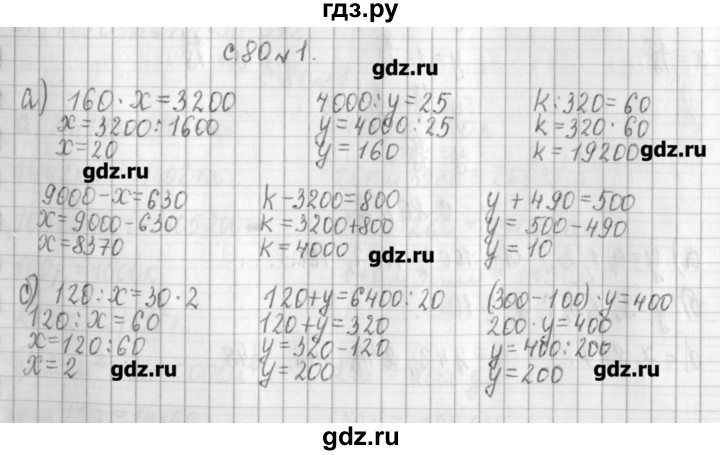 гдз.ру
с.80 № 1.
gdz.ru
а) 160 · x = 3200
x = 3200 : 1600
x = 20
4000 : y = 25
y = 4000 : 25
y = 160
k : 320 = 60
k = 320 · 60
k = 19200
gdz.ru
gdz.ru
9000 - x = 630
x = 9000 - 630
x = 8370
k - 3200 = 800
k = 3200 + 800
k = 4000
gdz.ru
y + 490 = 500
y = 500 - 490
y = 10
б) 120 : x = 30 · 2
120 : x = 60
x = 120 : 60
x = 2
gdz.ru
120 + y = 6400 : 20
120 + y = 320
y = 320 - 120
y = 200
(300 - 100) · y = 400
200 · y = 400
y = 400 : 200
y = 200
gdz.ru
gdz.ru